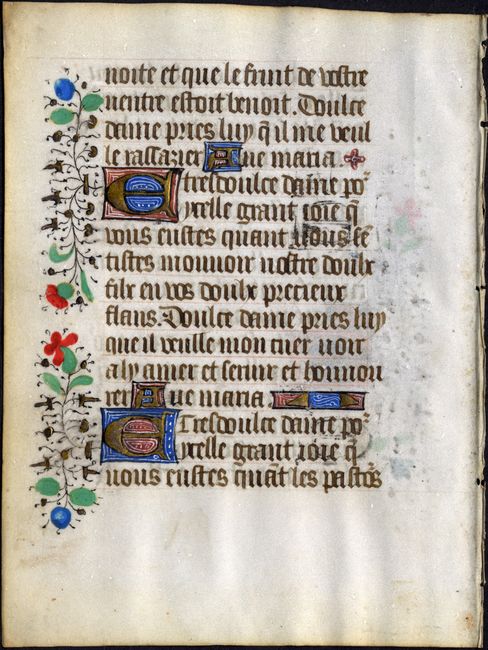 noite et que le fruit de vostre
uentre estoit benoit. Doulce
dame pries luy q̃ il me veul
le rassazier Aue maria.
E tresdoulce dame po᷑
ycelle grant ioie q̃
vous eustes quant vous sẽ
tistes mouuoir nostre doulx
filx en vos doulx precieux
flans. Doulce dame pries luy
que il veulle mon cuer uoir
a ly amer et seruir et honnou
rer Aue maria
E Tresdoulce dame po᷑
ycelle grant ioie q̃
uous eustes quãt les past᷑s